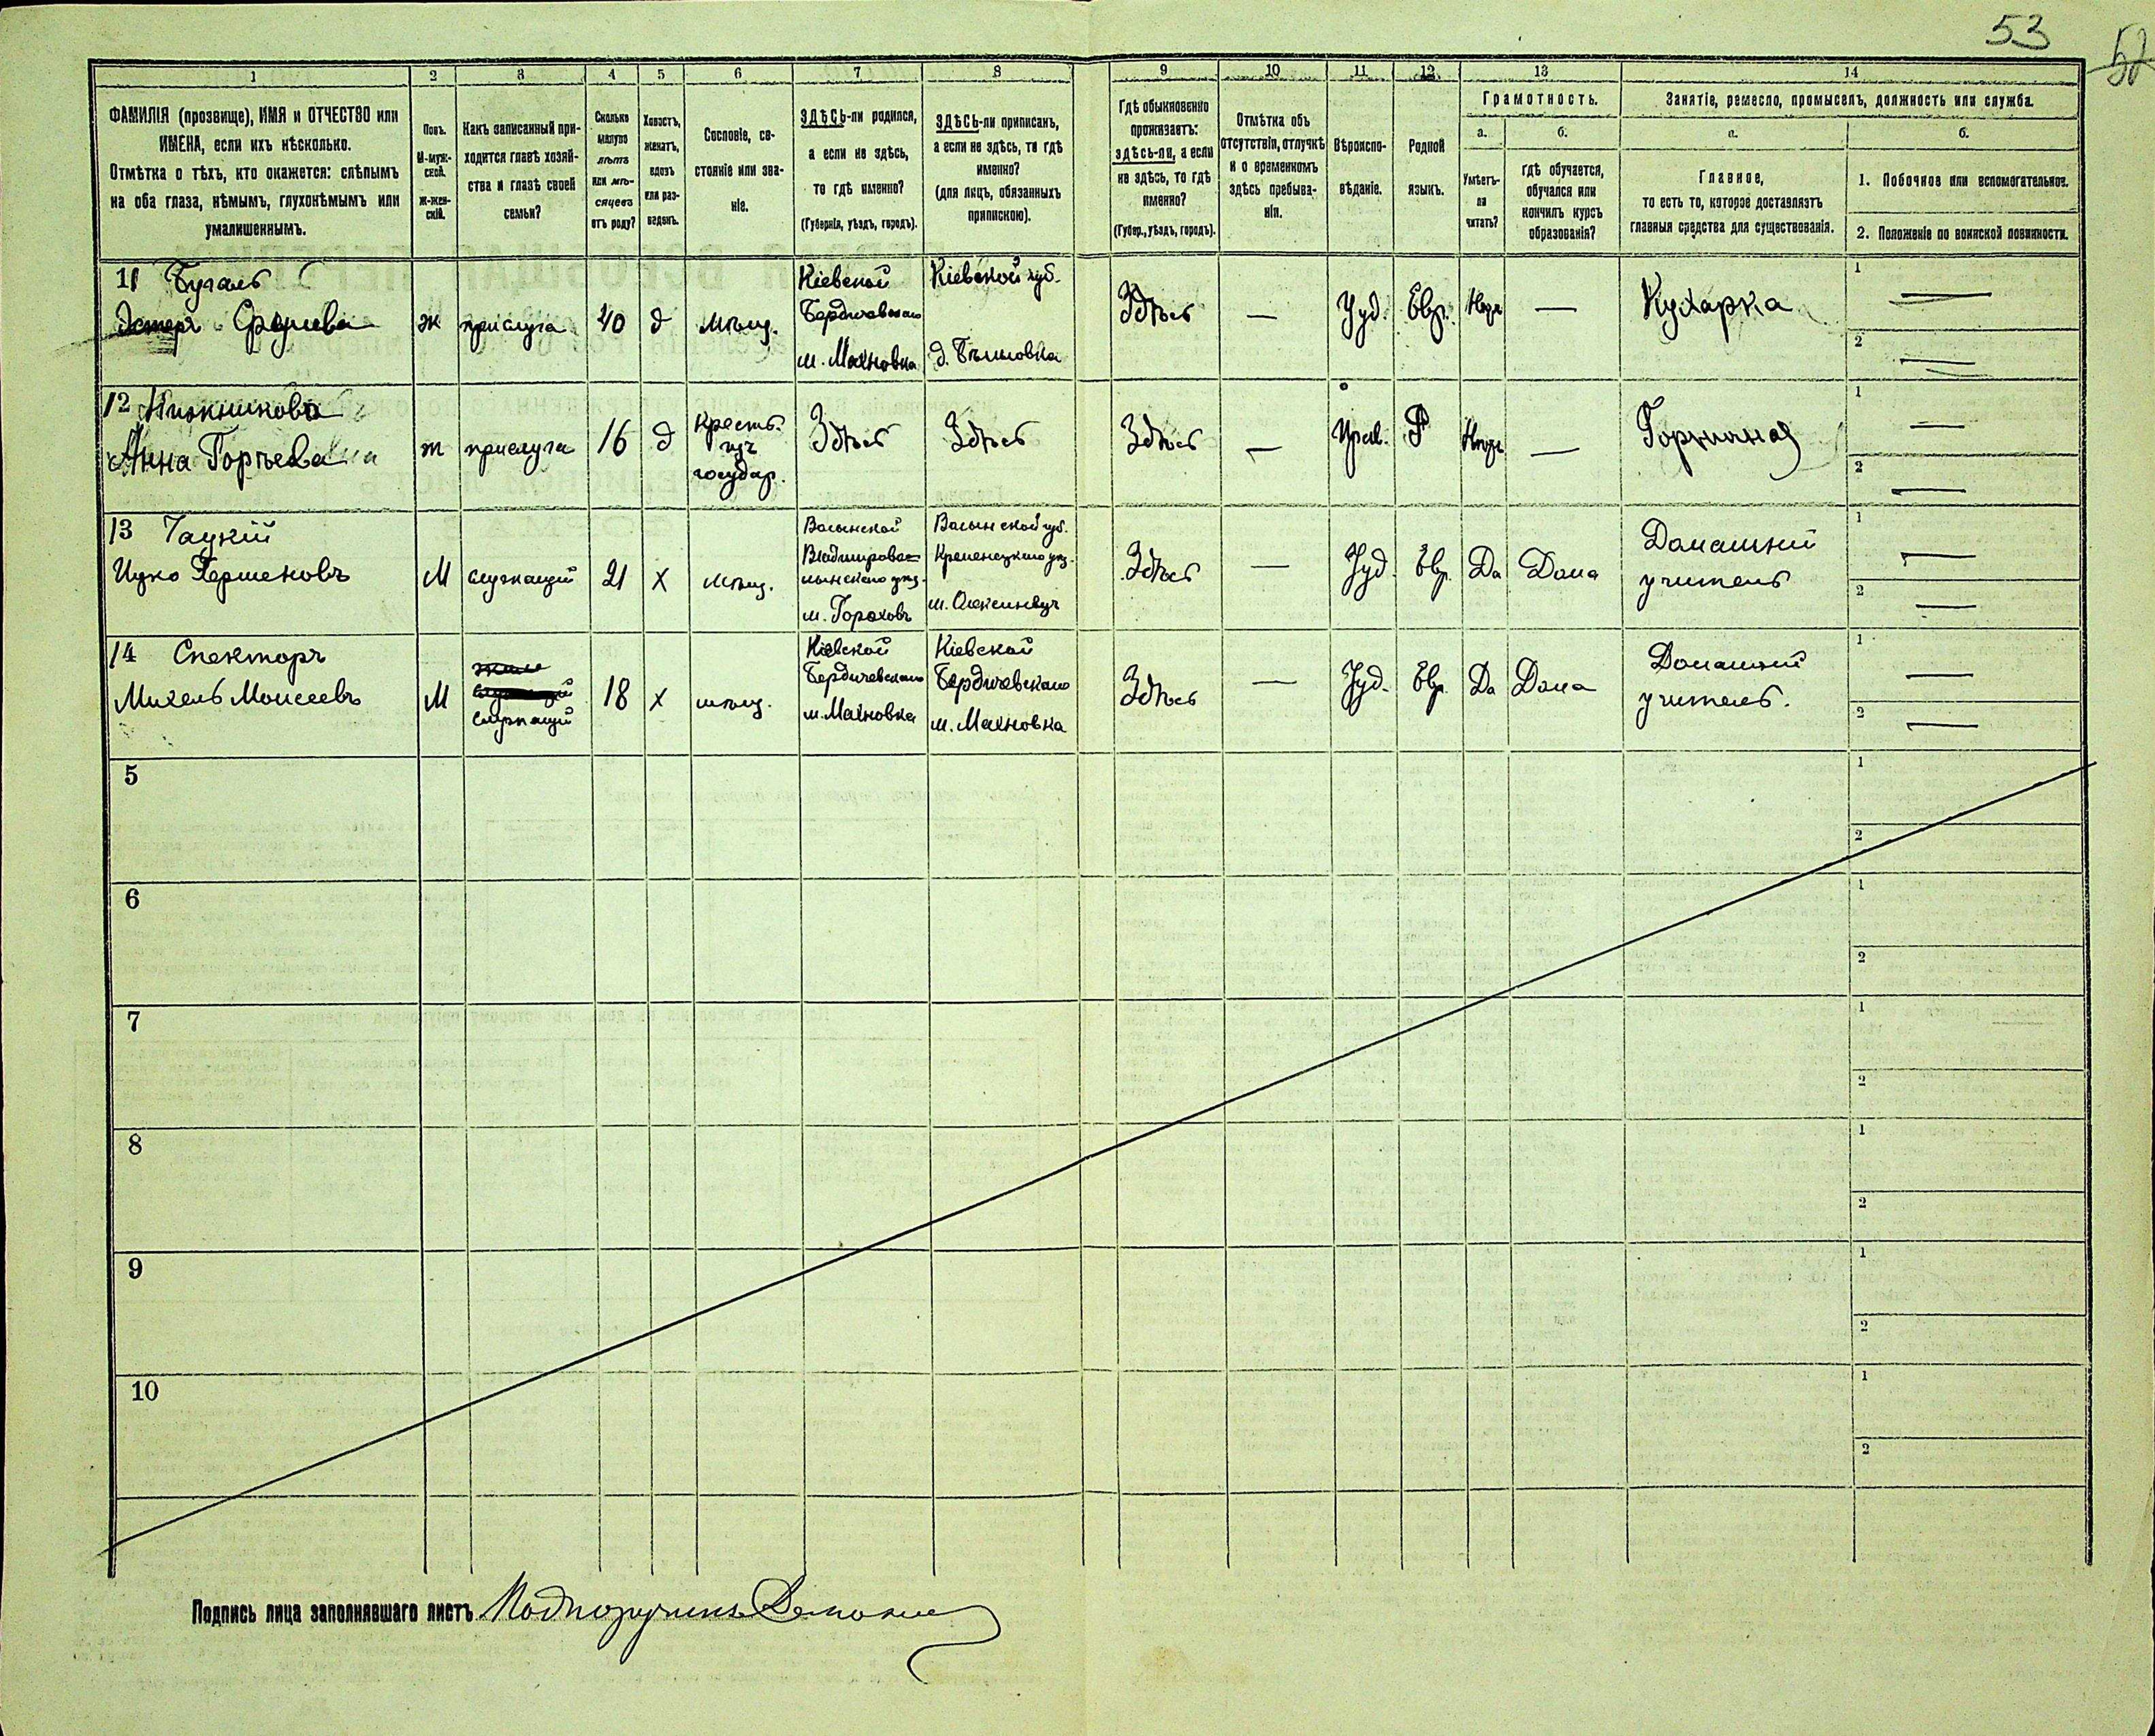 53
1 2 3 4 5 6 7 8 9 10 11 12 13 14
ФАМИЛІЯ (прозвище), ИМЯ и ОТЧЕСТВО или
ИМЕНА, если ихъ нѣсколько.
Отмѣтка о тѣхъ, кто окажется: слѣпымъ
на оба глаза, нѣмымъ, глухонѣмымъ или
умалишеннымъ.
Полъ.
М-муж-
ской.
Ж-жен-
скій.
Какъ записанный при-
ходится главѣ хозяй-
ства и главѣ своей
семьи?
Сколько
минуло
лѣтъ
или мѣ-
сяцевъ
отъ роду?
Холостъ,
женатъ,
вдовъ
или раз-
веденъ.
Сословіе, со-
стояніе или зва-
ніе.
ЗДѢСЬ-ли родился,
а если не здѣсь,
то гдѣ именно?
(Губернія, уѣздъ, городъ).
ЗДѢСЬ-ли приписанъ,
а если не здѣсь, то гдѣ
именно?
(для лицъ, обязанныхъ
припискою).
Гдѣ обыкновенно
проживаетъ:
здѣсь-ли, а если
не здѣсь, то гдѣ
именно?
(Губер., уѣздъ, городъ).
Отмѣтка объ
отсутствіи, отлучкѣ
и о временномъ
здѣсь пребыва-
ніи.
Вѣроиспо-
вѣданіе.
Родной
языкъ.
Грамотность.
а.
Умѣетъ-
ли
читать?
б.
гдѣ обучается,
обучался или
кончилъ курсъ
образованія?
Занятіе, ремесло, промыселъ, должность или служба.
а.
Главное,
то есть то, которое доставляетъ
главныя средства для существованія.
б.
1. Побочное или вспомогательное.
2. Положеніе по воинской повинности.
11
ж
прислуга
40
д
мѣщ.
Кіевской
Бердичевскаго
м. Махновка
Кіевской губ.
Здѣсь
—
Іуд.
Евр.
Нѣтъ
—
Кухарка
1 —
2 —
12
Анна
ж
прислуга
16
д
Крестъ.
изъ
государ.
Здѣсь
Здѣсь
Здѣсь
—
Прав.
Р
Нѣтъ
—
Горничная
1 —
2 —
13
Ицко Гершковъ
М
служащій
21
х
мѣщ.
Волынской
м. Гороховъ
Волынской губ.
Кременецкаго уѣз.
Здѣсь
—
Іуд.
Евр.
Да
Дома
Домашній
учитель
1 —
2 —
14 Спекторъ
Михель Моисеевъ
М
служащій
18
х
мѣщ.
Кіевской
Бердичевскаго
м. Махновка
Кіевской
Бердичевскаго
м. Махновка
Здѣсь
—
Іуд.
Евр.
Да
Дома
Домашній
учитель.
1 —
2 —
5
1
2
6
1
2
7
1
2
8
1
2
9
1
2
10
1
2
Подпись лица заполнявшаго листъ Подпоручикъ